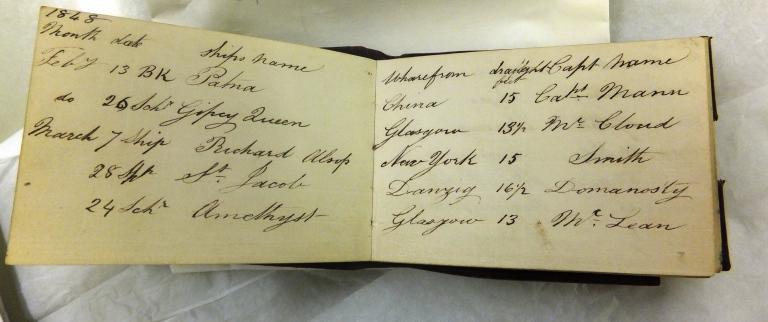 1848
Month date ships name
Feby 13 BK Patna
do 26 Schr Gipcy Queen
March 7 Ship Richard Alsop
28 St. Jacob
24 Schr Amethyst
Wharefrom draught feet Capt Name
China 15 Capt Mann
Glasgow 13½ Mc Cloud
New York 15 Smith
Danzig 16½ Domanosty
Glasgow 13 Mc Lean